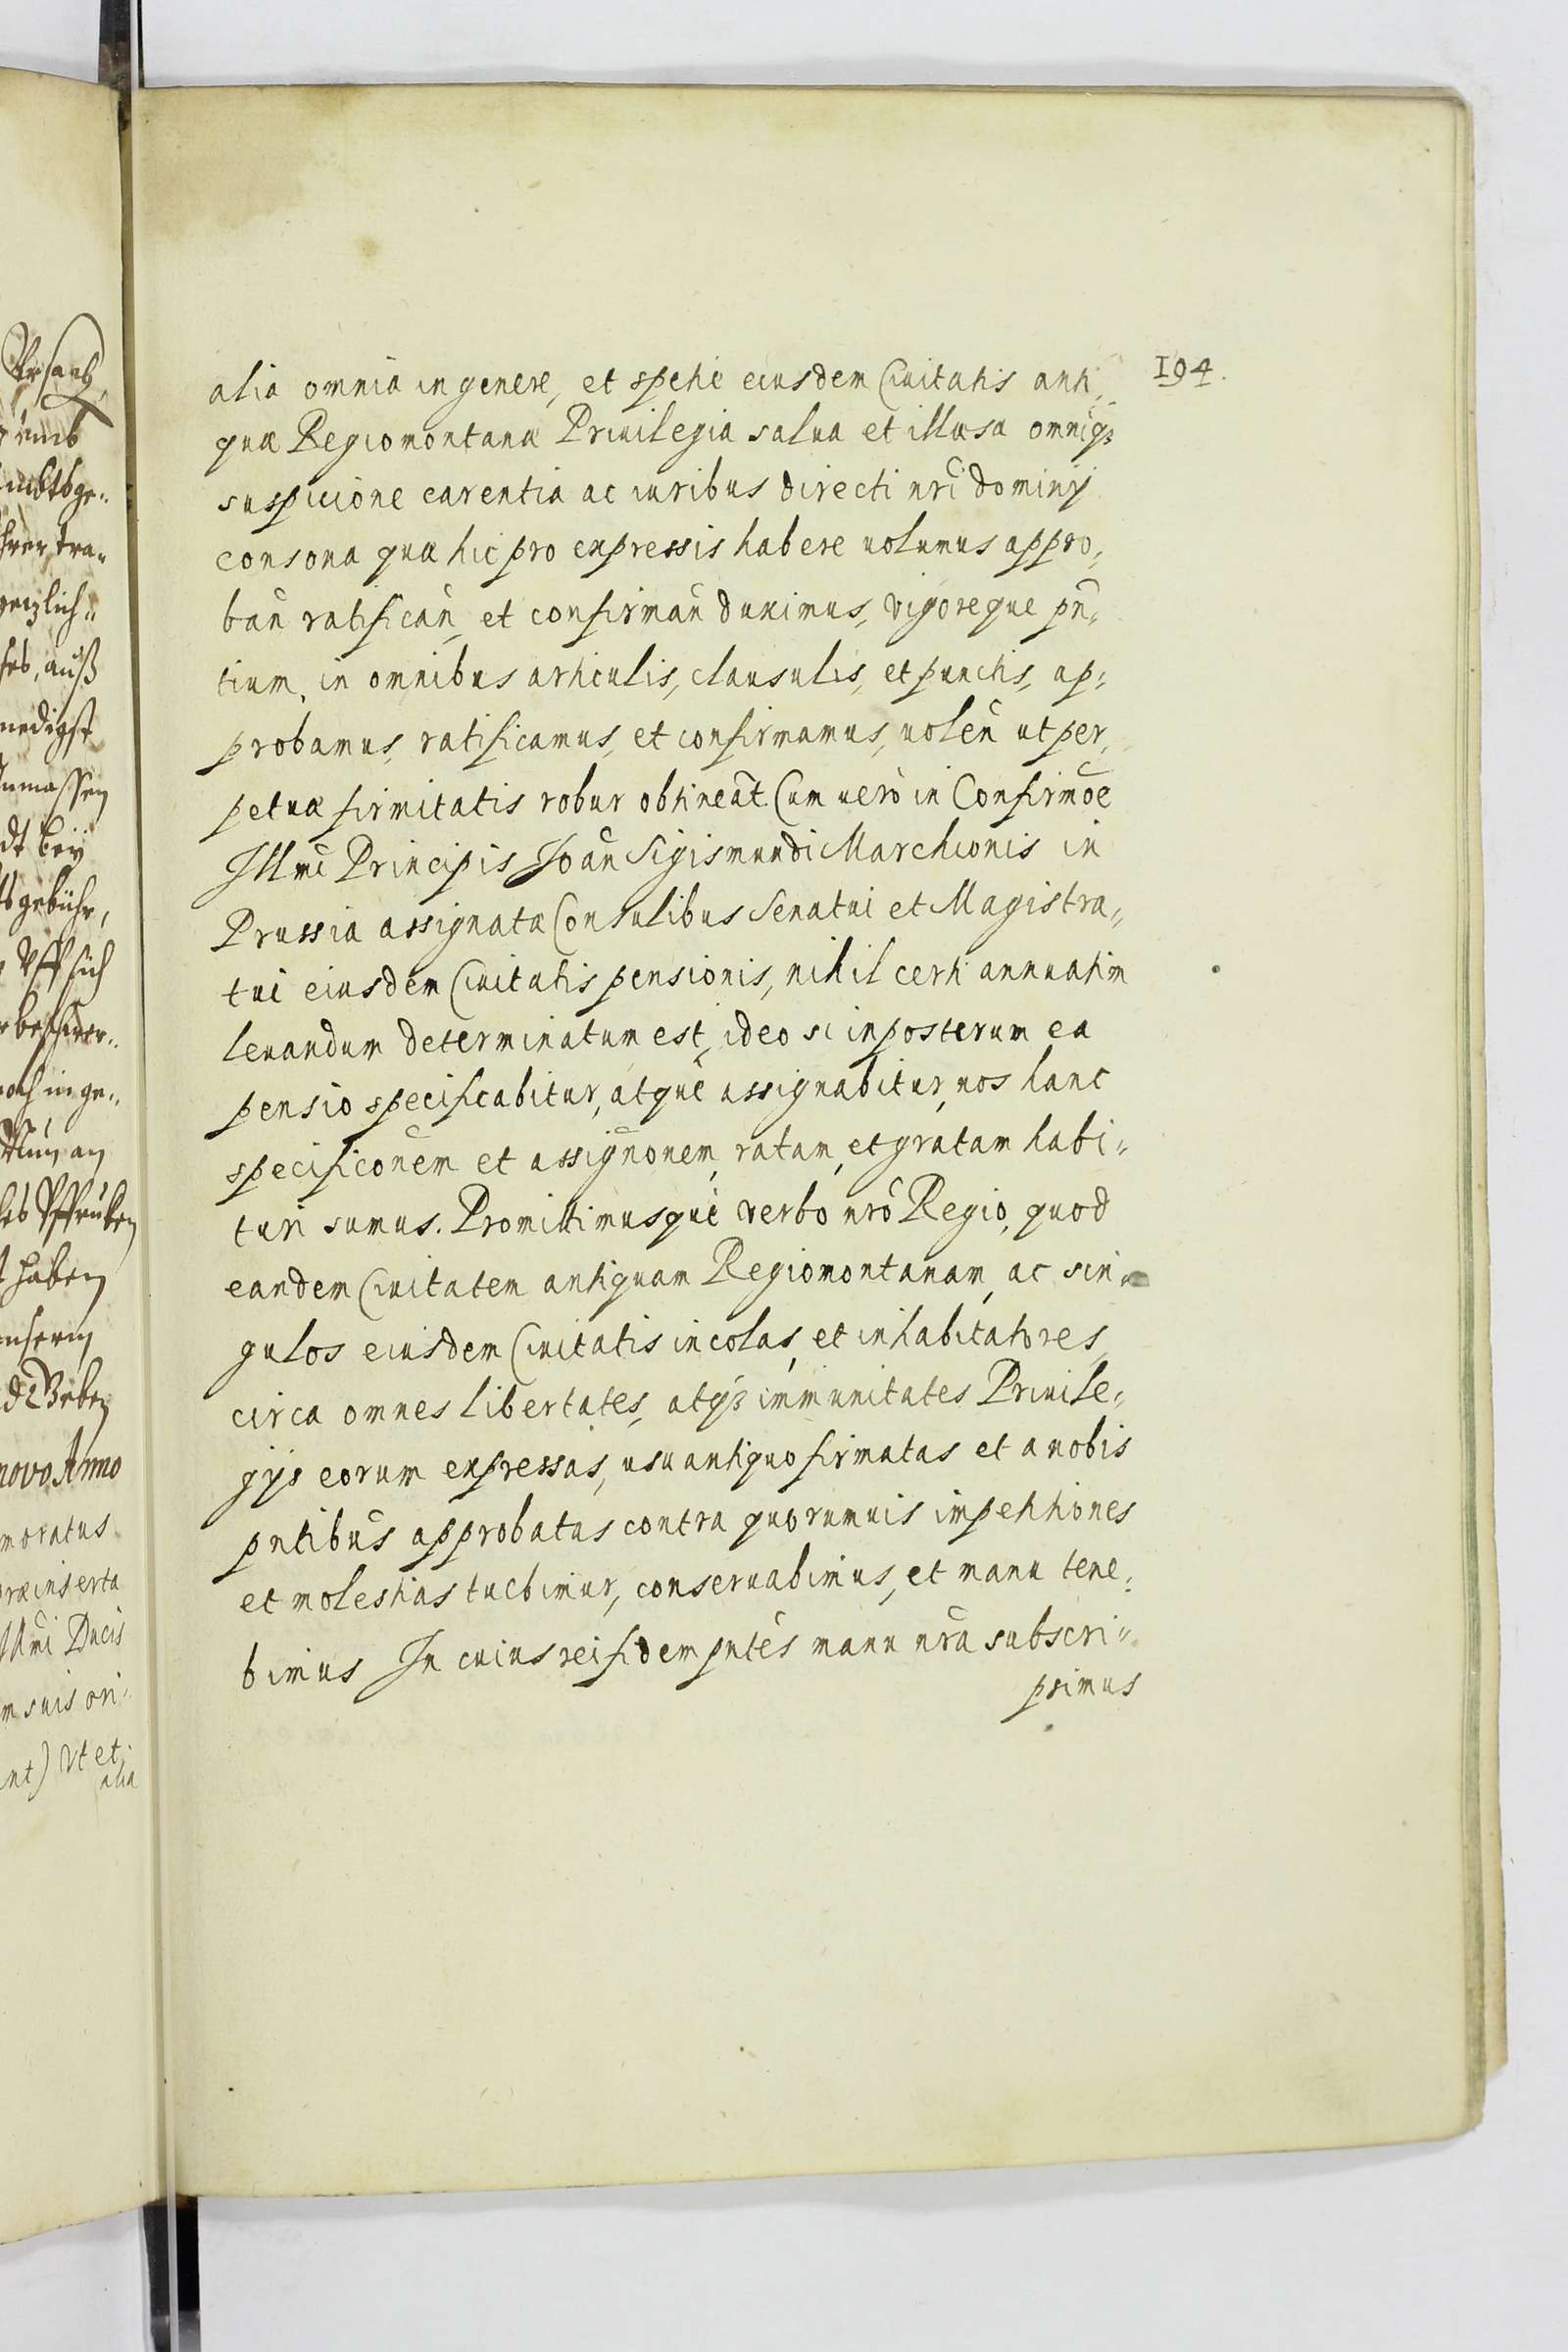 194.
alia omnia in genere, et spetie eiusdem Ciuitatis anti„
quæ Regiomontanæ Priuilegia salua et illæsa omniq3
suspicione carentia ac iuribus directi nri dominij
consona quæ hic pro expressis habere uolumus appro„
ban ratifican, et confirman duximus, vigoreque pn„
tium, in omnibus articulis, clausulis, et punctis, ap„
probamus, ratificamus, et confirmamus, uolen ut per„
petuæ firmitatis robur obtineat. Cum uerò in Confirmoe
Illmi Principis Joan Sigismundi Marchionis in
Prussia assignatæ Consulibus Senatui et Magistra„
tui eiusdem Ciuitatis pensionis, nihil certi annuatim
leuandum determinatum est, ideo si inposterum ea
pensio specificabitur, atque assignabitur, nos hanc
specificonem et assignonem, ratam, et gratam habi„
turi sumus. Promittimusque verbo nro Regio, quod
eandem Ciuitatem antiquam Regiomontanam, ac sin„
gulos eiusdem Ciuitatis incolas, et inhabitatores,
circa omnes libertates, atq3 immunitates Priuile„
gijs eorum expressas, usu antiquo firmatas et a nobis
pntibus approbatas contra quorumuis impetitiones
et molestias tuebimur, conseruabimus, et manu tene„
bimus In cuius rei fidem pntes manu nra subscri„
psimus
umb
auß
bey
gebühr,
Vff sich
haben
novo Anno
moratus
præinserta
Illmi Ducis
m suis ori„
nt) Vt et
alia